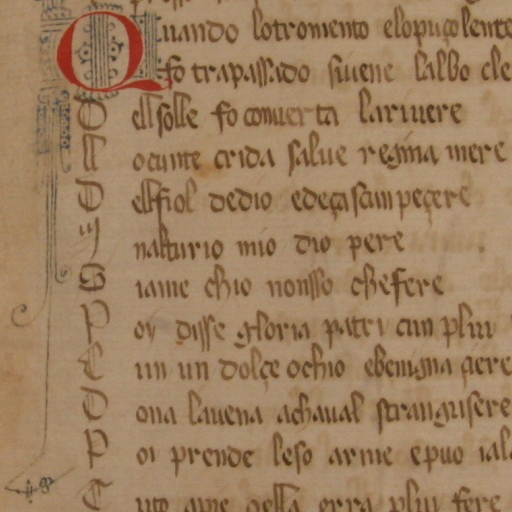 Quando lotromento elopuçolente
fo trapassado siuene lalbo cle
Dell solle fo conuerta lariuere
Mocunte crida salue regina mere
Del fiol dedio edeçascun peçere
mio dio pere
Siame chio nonsso chefere
Poy disse gloria patri cun plui
Cun un dolçe ochio ebenigna çere
Dona lauena achaual strangusere
Poi prende leso arme epuo
Cuto plui fere